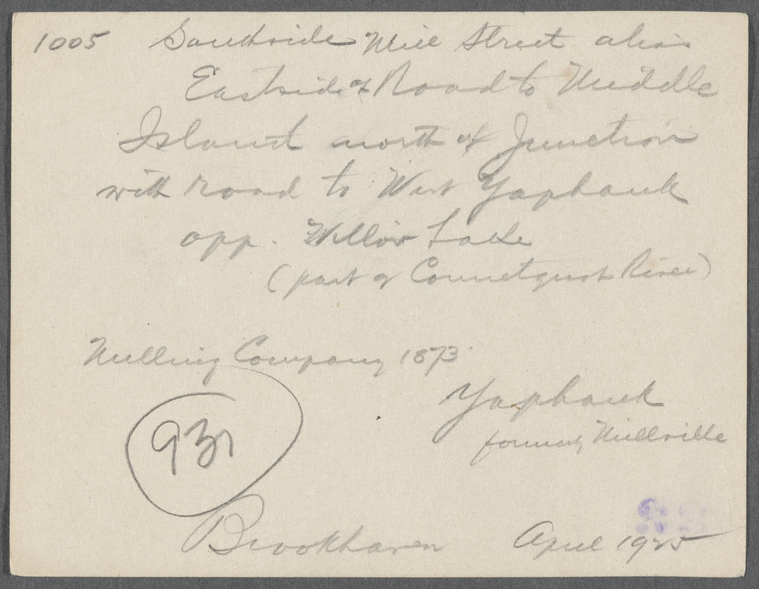 1005 Southside Mill Street alias
Eastside of Road to Middle
Island north of Junction
with road to West Yaphank
opp. Willow Lake
(part of Connetquot River)
Milling Company 1873
Yaphank
formerly Millville
931
Brookhaven April 1925